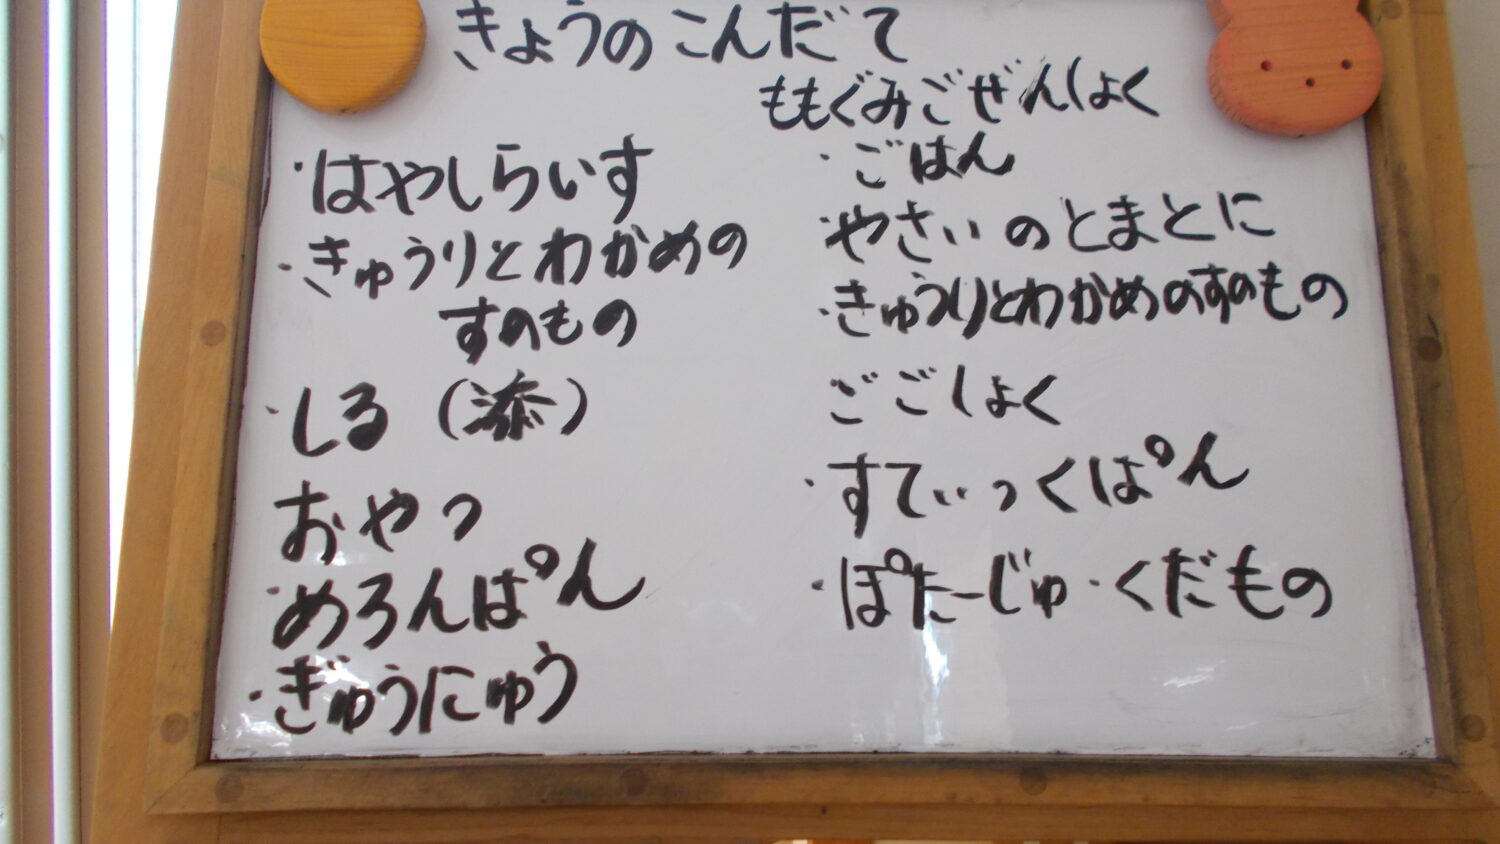 きょうのこんだて
・はやしらいす
・きゅうりとわかめの
すのもの
・しる（添）
おやつ
・めろんぱん
・ぎゅうにゅう
ももぐみごぜんしょく
・ごはん
・やさいのとまとに
・きゅうりとわかめのすのもの
ごごしょく
・すてぃっくぱん
・ぽたーじゅ・くだもの